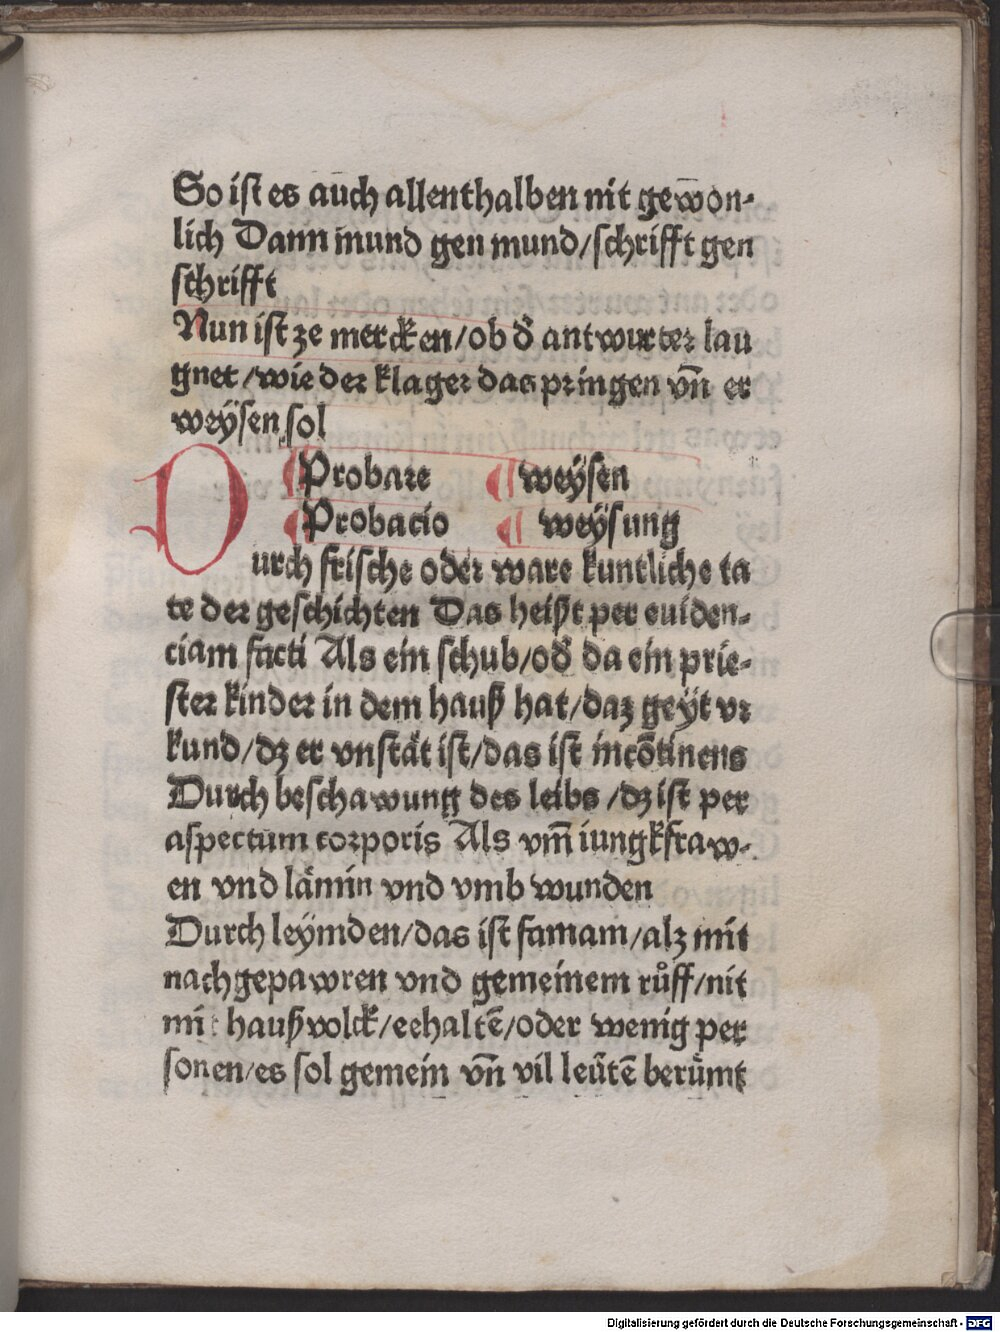 So iſt es auch allenthalben nit gewon-
lich Dann mund gen mund/ſchrifft gen
ſchrifft
Nun iſt ze mercken/ob d̄ antwurter lau
gnet/wie der klager das pringen vn̄ er
weÿſen ſol
¶ Probare ¶ weÿſen
¶ Probacio ¶ weÿſung
D
urch friſche oder ware kuntliche ta
te der geſchichten Das heißt per euiden-
ciam facti Als ein ſchub/od̄ da ein prie-
ſter kinder in dem hauß hat/daz geÿt vr
kund/dz er vnſtät iſt/das iſt incōtinens
Durch beſchawung des leibs/dz iſt per
aſpectum corporis Als vm̄ iungkfraw-
en vnd lämin vnd vmb wunden
Durch leÿmden/das iſt famam/alz mit
nachgepawren vnd gemeinem růff/nit
mit haußvolck/eehaltē/oder wenig per
ſonen/es ſol gemein vn̄ vil leütē berümt
Digitalisierung gefördert durch die Deutsche Forschungsgemeinschaft - DFG